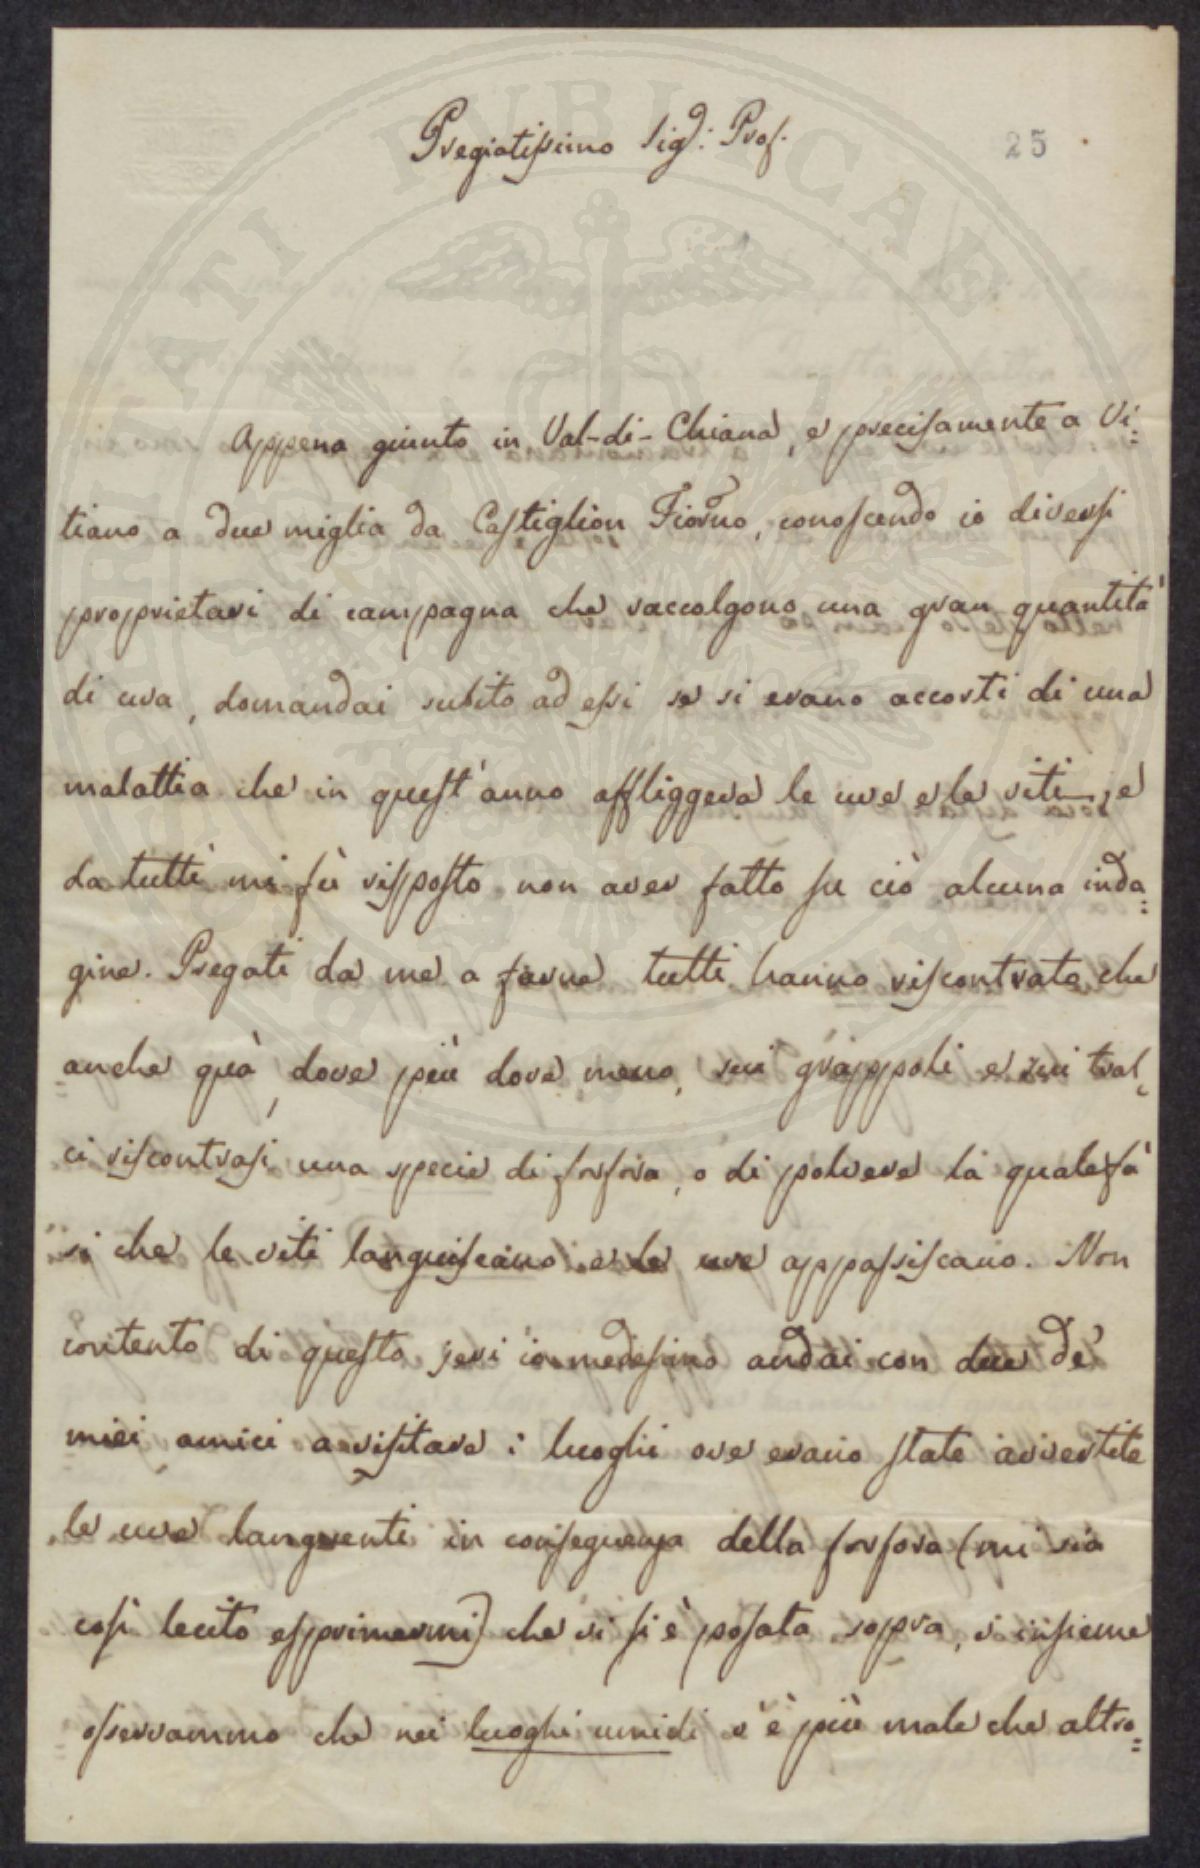 Pregiatissimo Sig.r: Prof.
25
Appena giunto in Val-di-Chiana, e precisamente a Vi=
tiano a due miglia da Castiglion Fior.no, conoscendo io diversi
proprietari di campagna che raccolgono una gran quantità
di uva, domandai subito ad essi se si erano accorti di una
malattia che in quest'anno affliggeva le uve e le viti, e
da tutti mi fù risposto non aver fatto su ciò alcuna inda=
gine. Pregati da me a farne tutti hanno riscontrato che
anche quà, dove più dove meno, sui grappoli e sui tral=
ci riscontrasi una specie di forfora, o di polvere la quale fà
sì che le viti languiscano e le uve appassiscano. Non
contento di questo jeri io medesimo andai con due de'
miei amici a visitare i luoghi ove erano state avvertite
le uve languenti in conseguenza della forfora (mi sia
così lecito esprimermi) che vi si è posata sopra, e insieme
osservammo che nei luoghi umidi v'è più male che altro=
PERITATI PUBLICAE